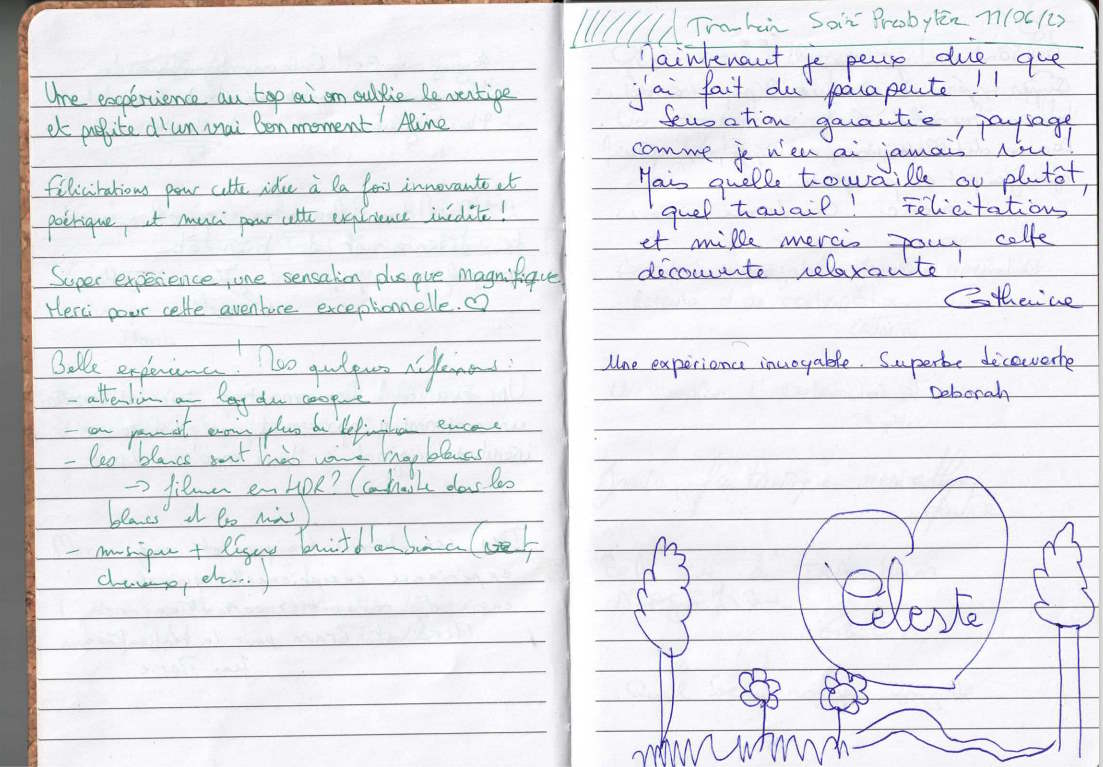 Une expérience au top où on oublie le vertige
et profite d'un vrai bon moment ! Aline
Félicitations pour cette idée à la fois innovante et
poétique, et merci pour cette expérience inédite !
Super expérience, une sensation plus que magnifique
Merci pour cette aventure exceptionnelle. ♡
Belle expérience ! Des quelques réflexions :
- attention au du casque
- on pourrait avoir plus de définition encore
- les blancs sont très voire trop blancs
-> filmer en HDR ? (contraste dans les
blancs et les noirs)
- musique + légers bruit d'ambiance (vent,
chevaux, etc...)
Soiré Presbytère 11/06/23
Maintenant je peux dire que
j'ai fait du parapente !!
Sensation garantie, paysage,
comme je n'en ai jamais vu !
Mais quelle trouvaille ou plutôt,
quel travail ! Félicitations
et mille mercis pour cette
découverte relaxante !
Catherine
Une expérience incroyable. Superbe découverte
Deborah
Céleste